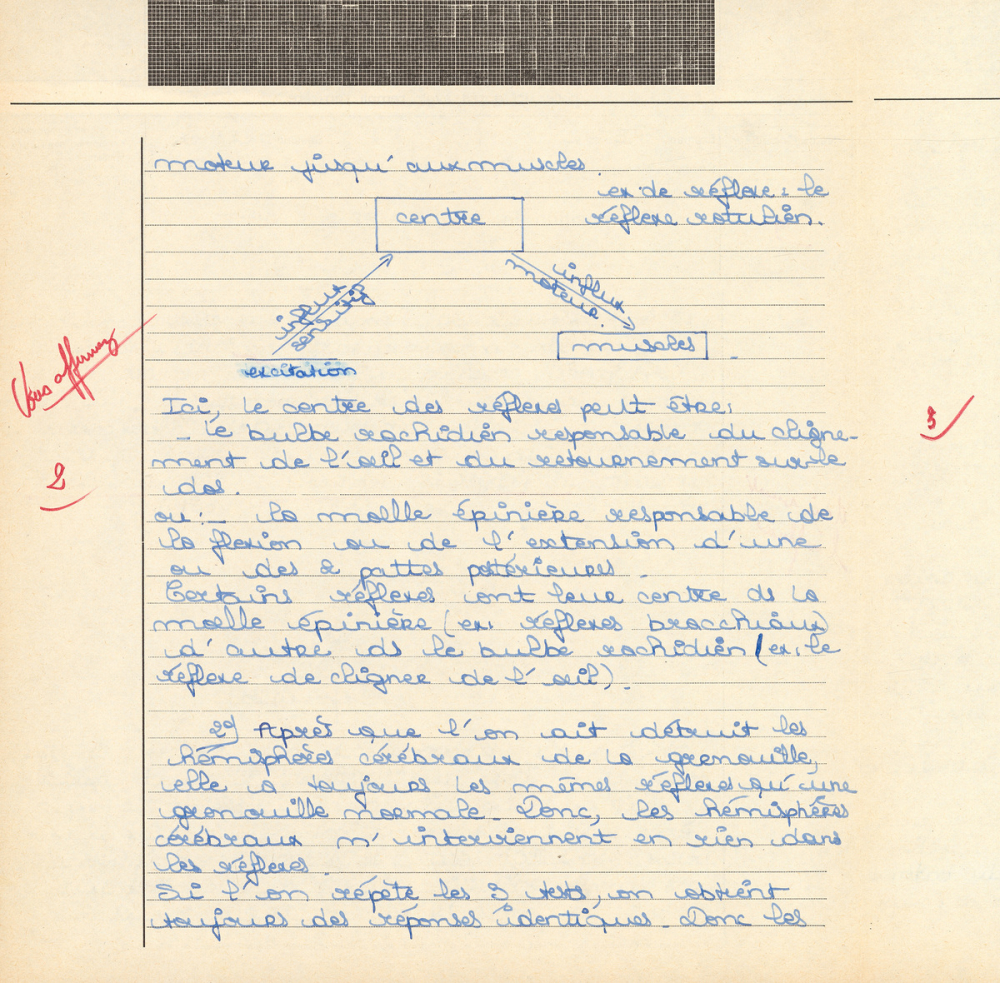 moteur jusqu'aux muscles
ex de réflexe : le
réflexe rotulien.
centre
influx
sensitif
influx
moteur.
muscles
excitation
Vous affirmez
Ici, le centre des réflexes peut être:
- le bulbe rachidien responsable du cligne-
ment de l'œil et du retournement sur le
dos.
2
3
ou:- la moelle épinière responsable de
la flexion ou de l'extension d'une
ou des 2 pattes postérieures.
Certains réflexes ont leur centre ds la
moelle épinière (ex: réflexes bracchiaux)
d'autre ds le bulbe rachidien (ex: le
réflexe de cligner de l'œil).
2°) Après que l'on ait détruit les
hémisphères cérébraux de la grenouille,
elle a toujours les mêmes réflexes qu'une
grenouille normale. Donc, les hémisphères
cérébraux n'interviennent en rien dans
les réflexes.
Si l'on répète les 3 tests, on obtient
toujours des réponses identiques. Donc les